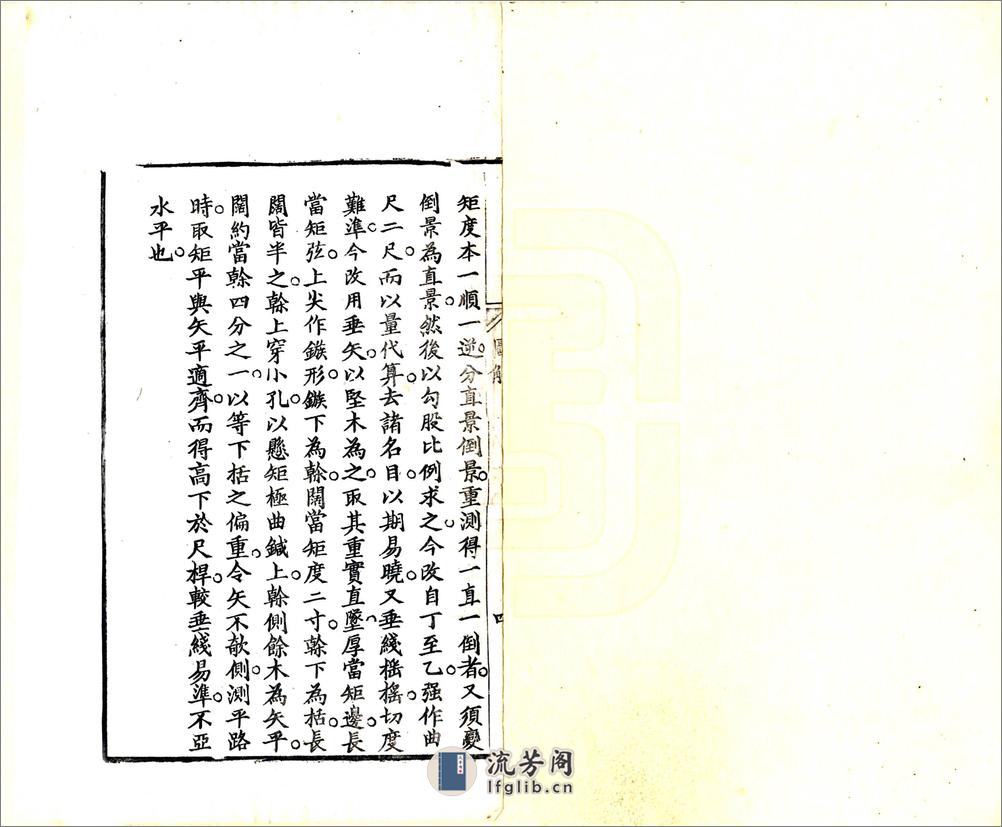 矩度本一順一逆。分直景倒景。重測得一直一倒者。又須變
倒景為直景。然後以勾股比例求之。今改自丁至乙。强作曲
尺二尺。而以量代算。去諸名目以期易曉。又垂綫榣搖切度
難準。今改用垂矢。以堅木為之。取其重實直墜。厚當矩邊。長
當矩弦。上尖作鏃形。鏃下為榦。闊當矩度二寸。榦下為括。長
闊皆半之。榦上穿小孔。以懸矩極曲鍼上。榦側餘木為矢平。
闊約當榦四分之一。以等下括之偏重。令矢不欹側。測平路
時。取矩平與矢平適齊。而得高下於尺桿。較垂綫易準。不亞
水平也。
流芳阁
lfglib.cn